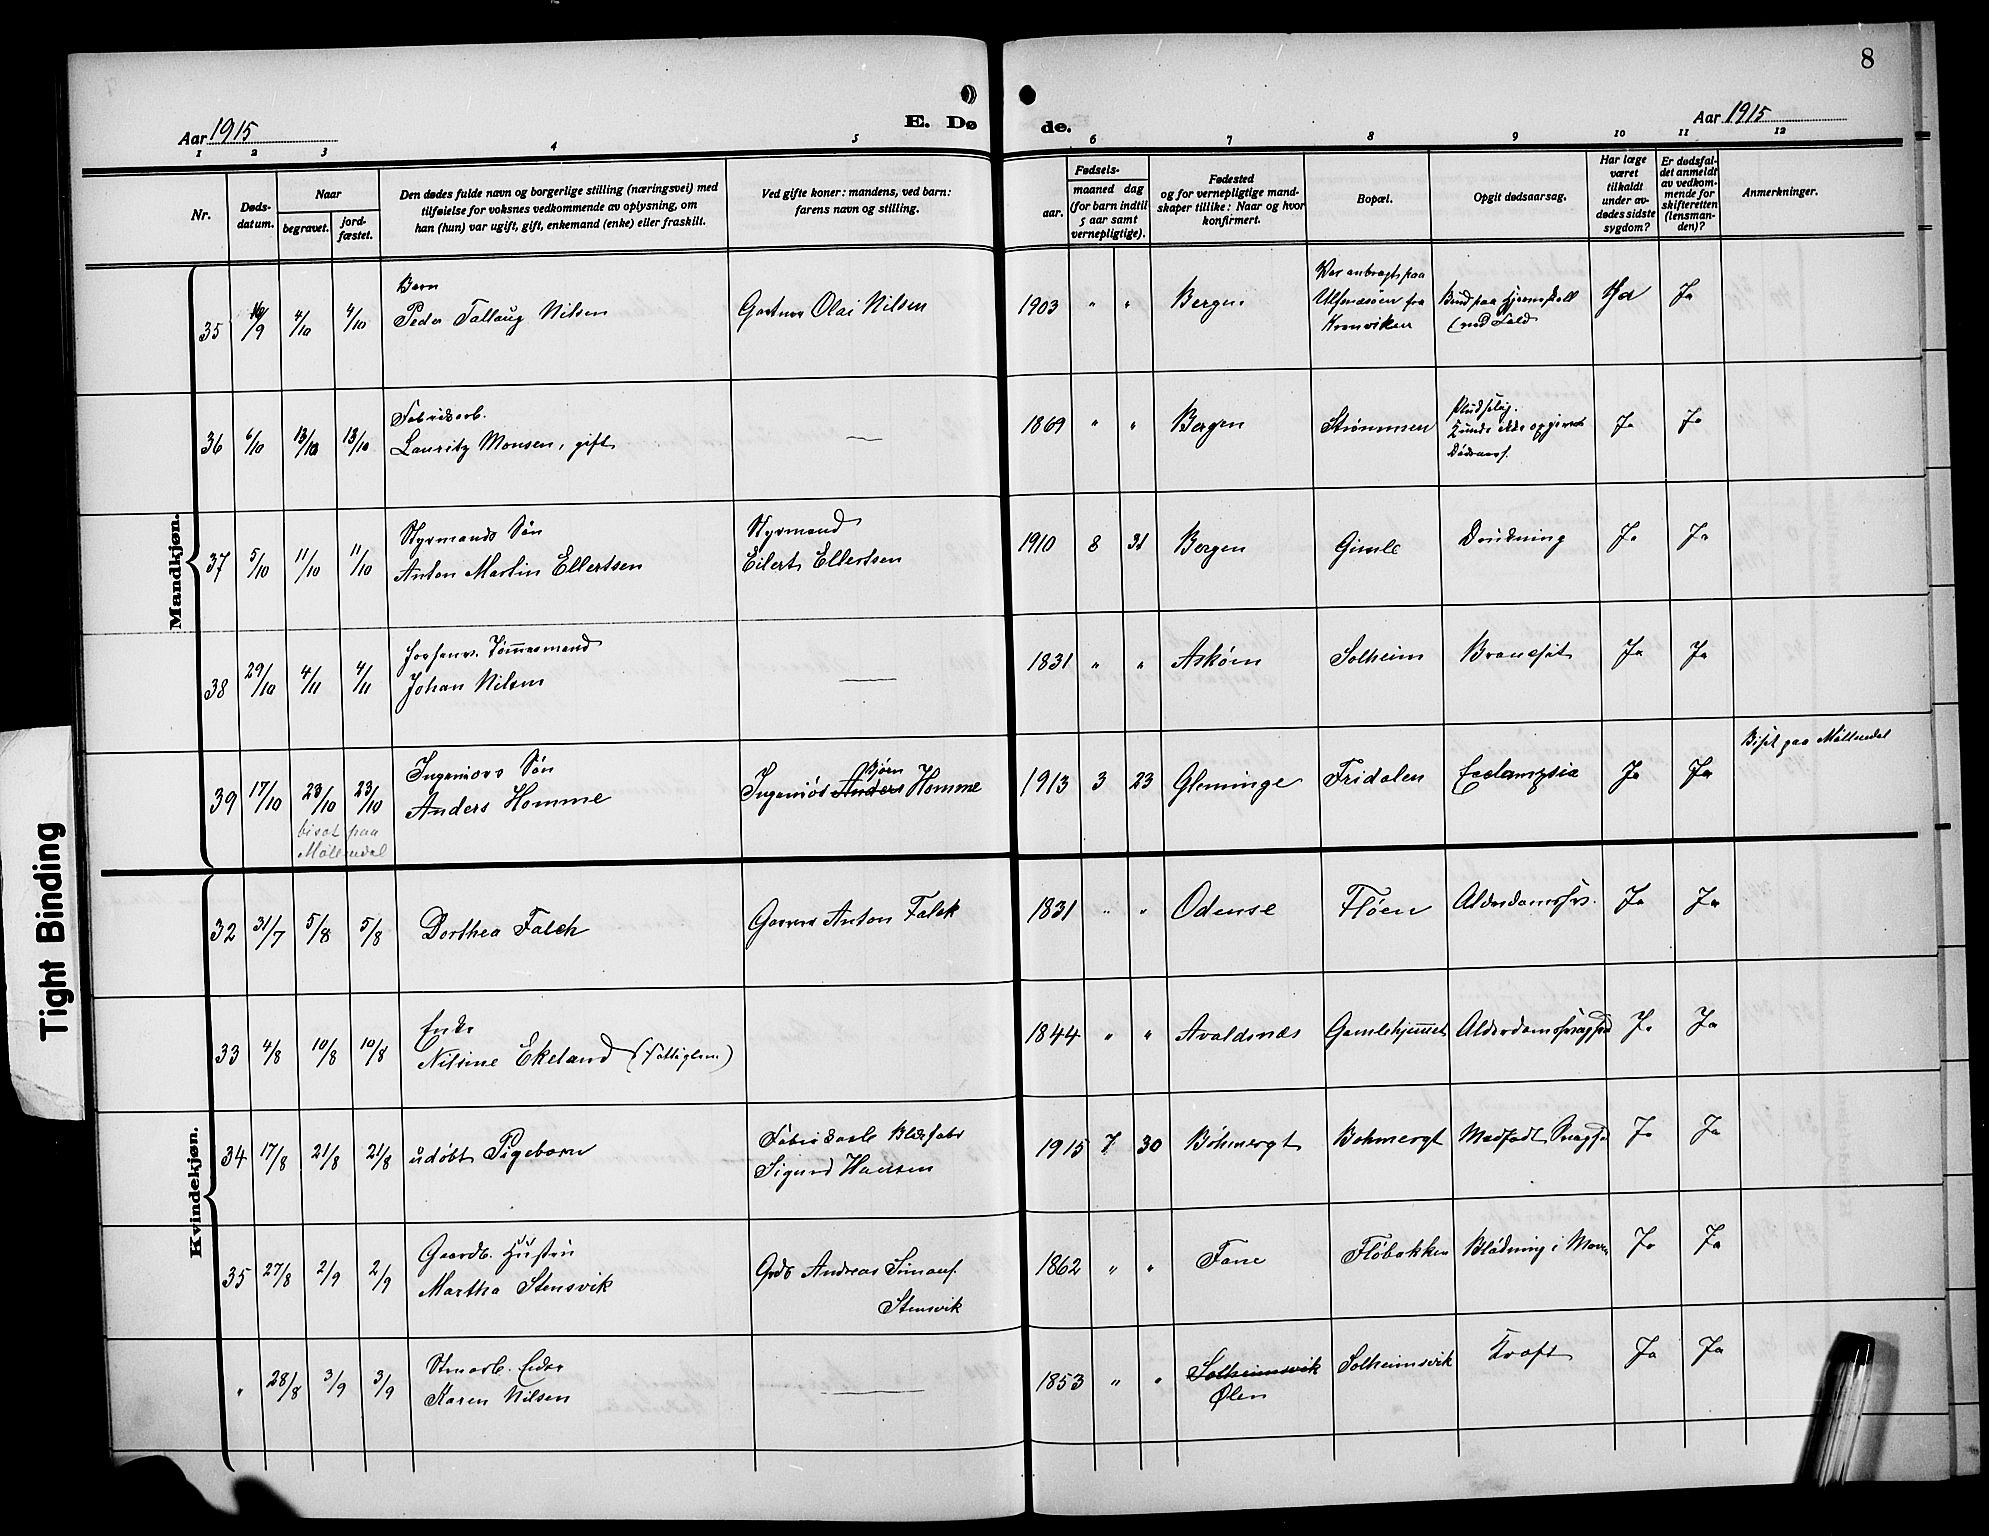 8
Aar 1915
E. Døde.
Aar 1915
1 2 3 4 5 6 7 8 9 10 11 12
Nr.
Døds-
datum.
Naar
begravet.
jord-
fæstet.
Den dødes fulde navn og borgerlige stilling (næringsvei) med
tilføielse for voksnes vedkommende av oplysning, om
han (hun) var ugift, gift, enkemand (enke) eller fraskilt.
Ved gifte koner: mandens, ved barn:
farens navn og stilling.
Fødsels-
aar.
maaned dag
(for barn indtil
5 aar samt
vernepligtige).
Fødested
og for vernepligtige mand-
skaper tillike: Naar og hvor
konfirmert.
Bopæl.
Opgit dødsaarsag.
Har læge
været
tilkaldt
under av-
dødes sidste
sygdom?
Er dødsfal-
det anmeldt
av vedkom-
mende for
skifteretten
(lensman-
den)?
Anmerkninger.
Mandkjøn.
Barn
35 /9 4/10 4/10 Peder Nilsen Olai Nilsen 1903 " " Bergen
Var anbragt paa
fra
Ja
Fabriksarb.
36 6/10 13/10 13/10 Lauritz Monsen, gift — 1869 " " Bergen Strømmen
Pludselig.
Ja Ja
Styrmands Søn
Styrmand
37 5/10 11/10 11/10 Anton Martin Ellertsen Eilert Ellertsen 1910 8 31 Bergen Gimle Drukning Ja Ja
Tømmermand
38 29/10 4/11 4/11 Johan Nilsen — 1831 " " Askøen Solheim Ja Ja
Ingeniørs Søn
Bjørn
39 17/10 23/10 23/10 Anders Homme Ingeniør Anders Homme 1913 3 23 Glemminge Fridalen Eclampsia Ja Ja
Biset paa Møllendal
biset paa
Møllendal
Kvindekjøn.
32 31/7 5/8 5/8 Dorthea Falck Anton Falck 1831 " " Odense Fløen Ja Ja
Enke
33 4/8 10/8 10/8 Nilsine Ekeland 1844 " " Avaldsnæs Gamlehjemmet Ja Ja
34 17/8 21/8 21/8 udøbt Pigebarn
Sigurd Hansen
1915 7 30 Böhmergt Bohmergt Ja Ja
Gaardb. Hustru
35 27/8 2/9 2/9 Martha Stensvik Andreas
Stensvik
1862 " " Fane Fløbakken Blødning i Maven Ja Ja
" 28/8 3/9 3/9 Karen Nilsen — 1853 " " Solheimsvik Solheimsvik Kræft Ja Ja
Ølen
Tight Binding